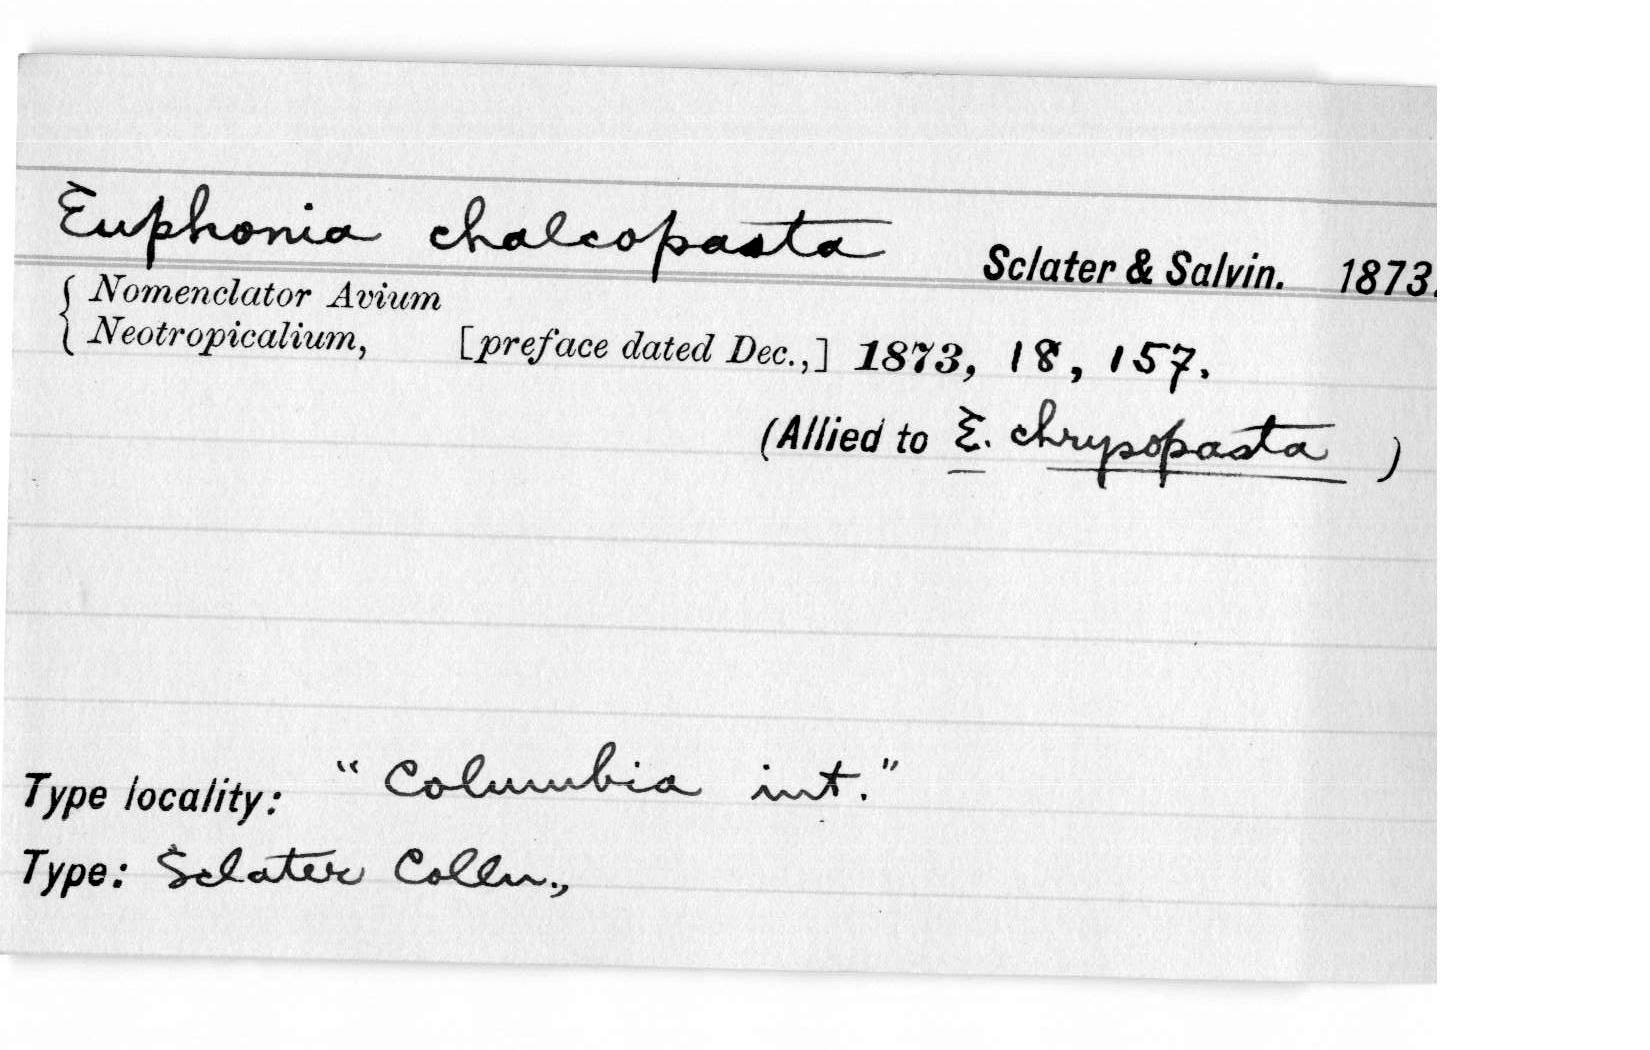 Euphonia chalcopasta Sclater & Salvin. 1873.
Nomenclator Avium
Neotropicalium, [preface dated Dec.,] 1873, 18, 157.
(Allied to E. chrysopasta )
Type locality: "Columbia int."
Type: Sclater Colln.,